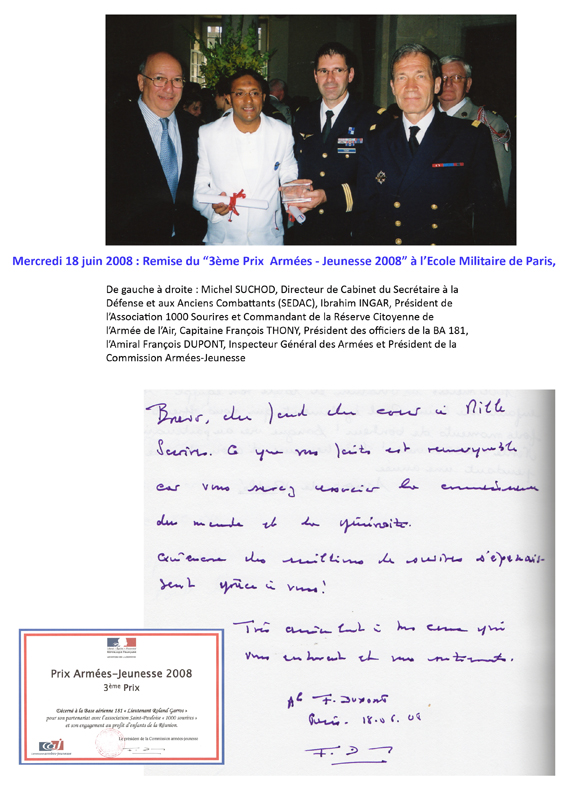 Mercredi 18 juin 2008 : Remise du “3ème Prix Armées - Jeunesse 2008” à l’Ecole Militaire de Paris,
De gauche à droite : Michel SUCHOD, Directeur de Cabinet du Secrétaire à la
Défense et aux Anciens Combattants (SEDAC), Ibrahim INGAR, Président de
l’Association 1000 Sourires et Commandant de la Réserve Citoyenne de
l’Armée de l’Air, Capitaine François THONY, Président des officiers de la BA 181,
l’Amiral François DUPONT, Inspecteur Général des Armées et Président de la
Commission Armées-Jeunesse
Bravo, du fond du cœur à Mille
Sourires. Ce que vous faites est remarquable
car vous savez associer la
du monde et la générosité.
Qu'encore des millions de sourires s'épanouis-
sent grâce à vous!
Très à tous ceux qui
vous entourent et vous
Al F. DUPONT
Paris. 18.06.08
F. D
Prix Armées–Jeunesse 2008
3ème Prix
Décerné à la Base aérienne 181 « Lieutenant Roland Garros »
pour son partenariat avec l'association Saint-Pauloise « 1000 sourires »
et son engagement au profit d'enfants de la Réunion.
Le président de la Commission armées-jeunesse